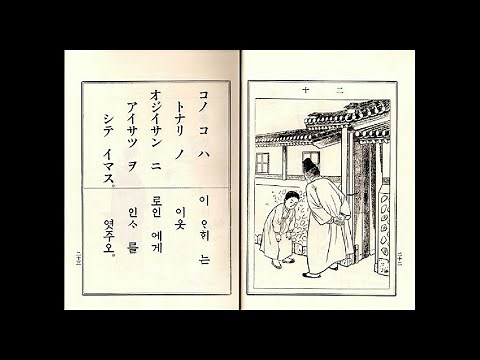 二十
二十二
コノ コ ハ
トナリ ノ
オジイサン ニ
アイサツ ヲ
シテ イマス。
이 ᄋᆞ희 는
이웃
로인 에게
인ᄉᆞ 를
엿주오。
二十三